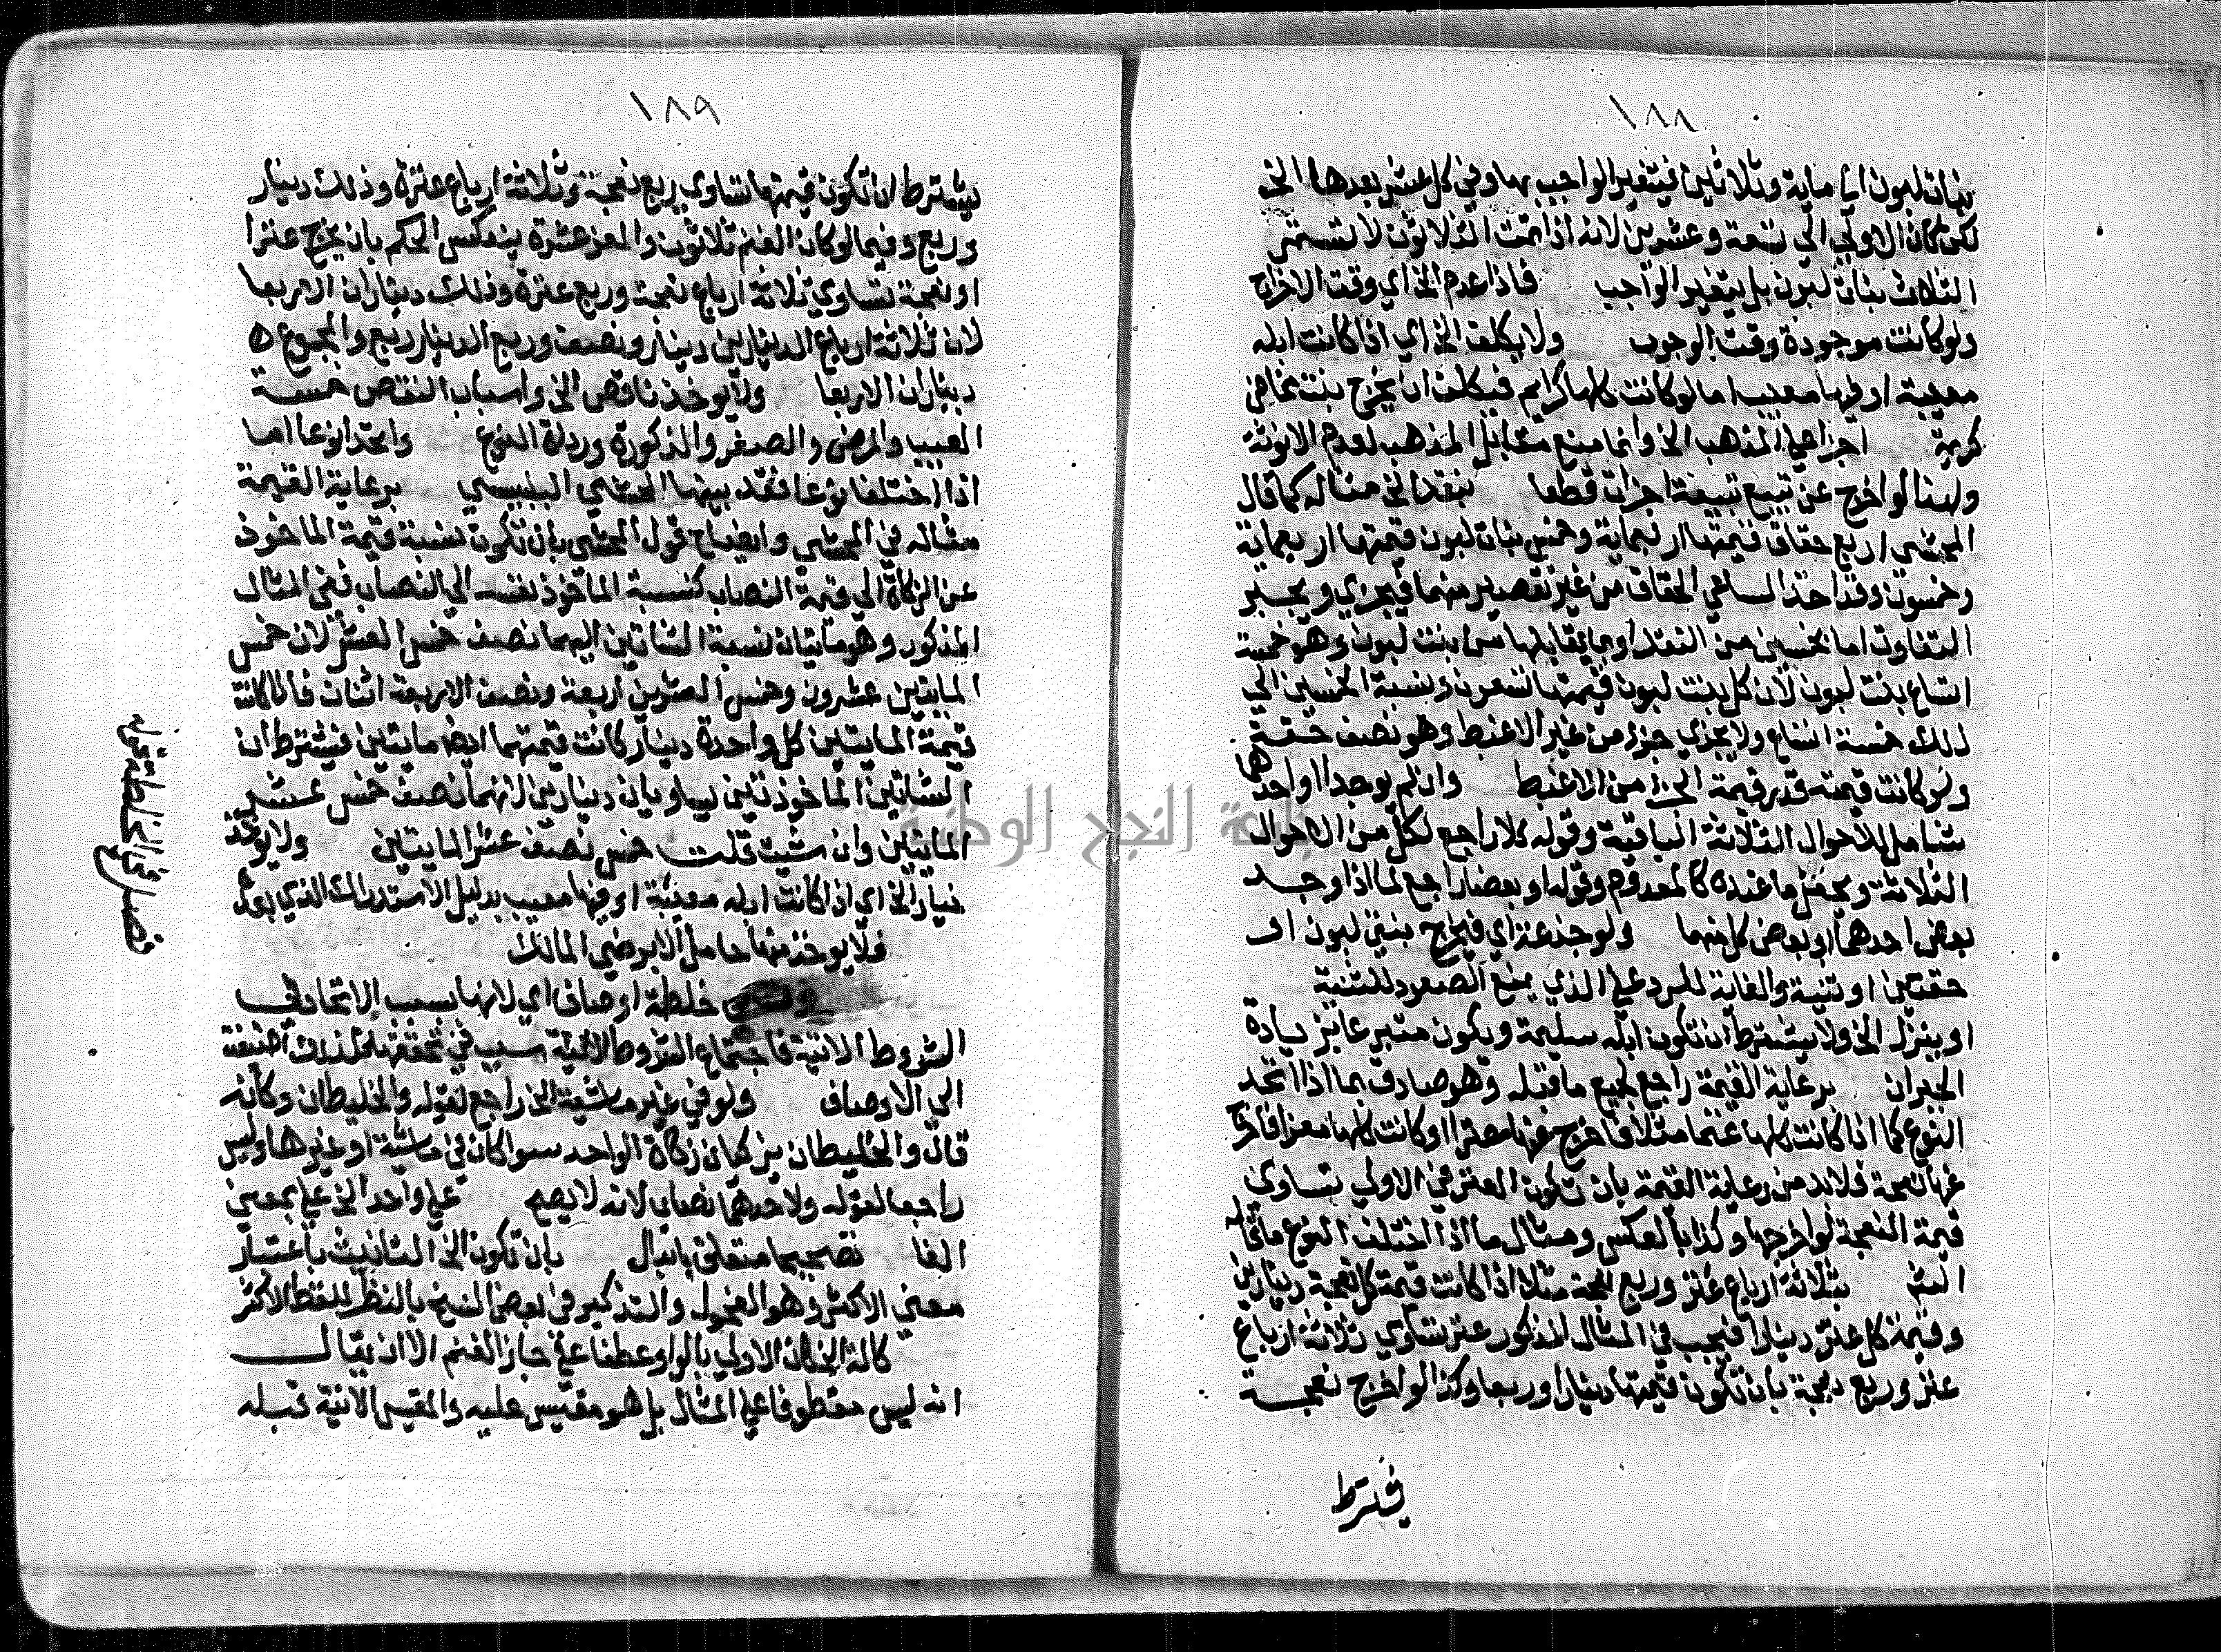 ١٨٨
بنات لبون الى ماية وثلاثين فيتغير الواجب بها وفي كل عشر بعدها الخ
لكن الاولى الى تسعة وعشرين لانه اذا تمت الثلاثون لا تستمر
الثلاث بنات لبون بل يتغير الواجب فاذا عدم الخ اي وقت الاخراج
ولو كانت موجودة وقت الوجوب ولا يكلف الخ اي اذا كانت ابله
معيبة او فيها معيب اما لو كانت كلها كرايم فيكلف ان يخرج بنت مخاض
كريمة اجزا على المذهب الخ وانما منع مقابل المذهب لعدم الانوثة
ولهذا لو اخرج عن تبيع تبيعة اجزات قطعا بنقد الخ مثاله كما قال
المحشي اربع حقاق قيمتها اربعماية وخمس بنات لبون قيمتها اربعماية
وخمسون وقد اخذ الساعي الحقاق من غير تقصير منهما فيجزي ويجبر
التفاوت اما بخمسين من النقد او بما يقابلها من بنت لبون وهو خمسة
اتساع بنت لبون لان كل بنت لبون قيمتها تسعون ونسبة الخمسين الى
ذلك خمسة اتساع ولا يجزي جزء من غير الاغبط وهو نصف حقة
ولو كانت قيمته قدر قيمة الجزء من الاغبط وان لم يوجدا او احدهما
شامل للاحوال الثلاثة الباقية وقوله كلا راجع لكل من الاحوال
الثلاثة ما عنده كالمعدوم وقوله او بعضا راجع لما اذا وجد
بعض احدهما او بعض كل منهما ولو جذعة اي فيخرج بنتي لبون او
حقتين او ثنية والغاية للرد على الذي يمنع الصعود للثنية
او ينزل الخ ولا يشترط ان تكون ابله سليمة ويكون متبرعا بزيادة
الجبران برعاية القيمة راجع لجميع ما قبله وهو صادق بما اذا اتحد
النوع كما اذا كانت كلها غنما مثلا فاخرج عنها معزا او كانت كلها معزا فاخرج
عنها نعجة فلابد من رعاية القيمة بان تكون العنز في الاولى تساوي
قيمة النعجة لو اخرجها وكذا بالعكس ومثال ما اذا اختلف النوع ما قاله
الش بثلاثة ارباع عنز وربع نعجة مثلا اذا كانت قيمة كل نعجة دينارين
وقيمة كل عنز دينارا فيجب في المثال المذكور عنز تساوي ثلاثة ارباع
عنز وربع نعجة بان تكون قيمتها دينارا وربعا وكذا لو اخرج نعجة
فيشترط
١٨٩
يشترط ان تكون قيمتها تساوي ربع نعجة وثلاثة ارباع عنزة وذلك دينار
وربع وفيما لو كان الغنم ثلاثون والمعز عشرة ينعكس الحكم بان يخرج عنزا
او نعجة تساوي ثلاثة ارباع نعجة وربع عنزة وذلك ديناران الا ربعا
لان ثلاثة ارباع الدينارين دينار ونصف وربع الدينار ربع والمجموع
ديناران الا ربعا ولا يوخذ ناقص الخ واسباب النقص خمسة
العيب والمرض والصغر والذكورة ورداة النوع واتحدا نوعا اما
اذا اختلفا نوعا فقد بينها المحشي البلبيسي برعاية القيمة
مثاله في المحشي وايضاح قول المحشي بان تكون نسبة قيمة الماخوذ
عن الزكاة الى قيمة النصاب كنسبة الماخوذ نفسه الى النصاب ففي المثال
المذكور وهو مايتان نسبة الشاتين اليهما نصف خمس العشر لان خمس
المايتين عشرون وخمس العشرين اربعة ونصف الاربعة اثنان فاذا كانت
قيمة المايتين كل واحدة دينار كانت قيمتهما ايضا مايتين فيشترط ان
الشاتين الماخوذتين يساويان دينارين لانهما نصف خمس عشر
المايتين وان شيت قلت خمس نصف عشر المايتين ولا يوخذ
خيار الخ اي اذا كانت ابله معيبة او فيها معيب بدليل الاستدراك الذي بعده
فلا يوخذ منها حامل الا برضى المالك
خلطة اوصاف اي لانها بسبب الاتحاد في
الشروط الاتية فاجتماع الشروط الاتية سبب في تحققها فلذلك اضيفت
الى الاوصاف ولو في غير ماشية الخ راجع لقوله والخليطان وكانه
قال والخليطان يزكيان زكاة الواحد سوا كان في ماشية او غيرها وليس
راجعا لقوله ولاحدهما نصاب لانه لا يصح على واحد الخ على بمعنى
الفا تصحيحا متعلق بابدال بان تكون الخ التانيث باعتبار
معنى الاكثر وهو الفحول والتذكير في بعض النسخ بالنظر للفظ الاكثر
كالة الخ كان الاولى بالواو عطفا على جاز الغنم الا ان يقال
انه ليس معطوفا على المثال بل هو مقيس عليه والمقيس الاتية قبله
فصل في الخلطة قوله
جامعة النجاح الوطنية